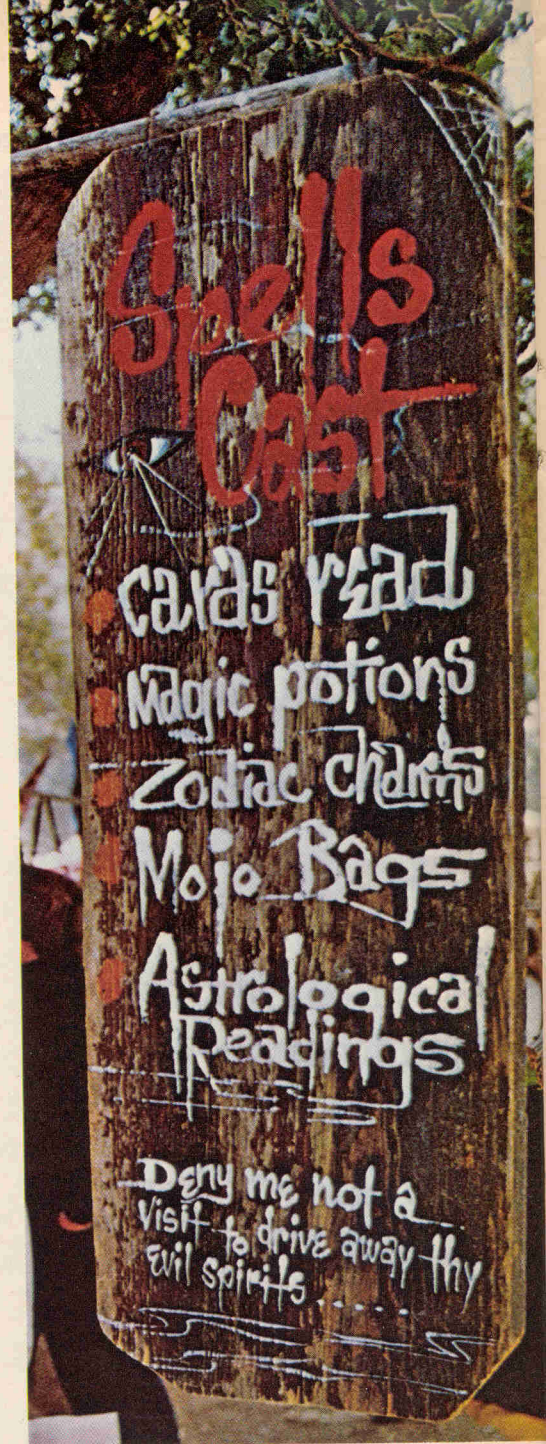 Spells
Cast
cards read
Magic potions
Zodiac charms
Mojo Bags
Astrological
Readings
Deny me not a
visit to drive away thy
evil spirits......